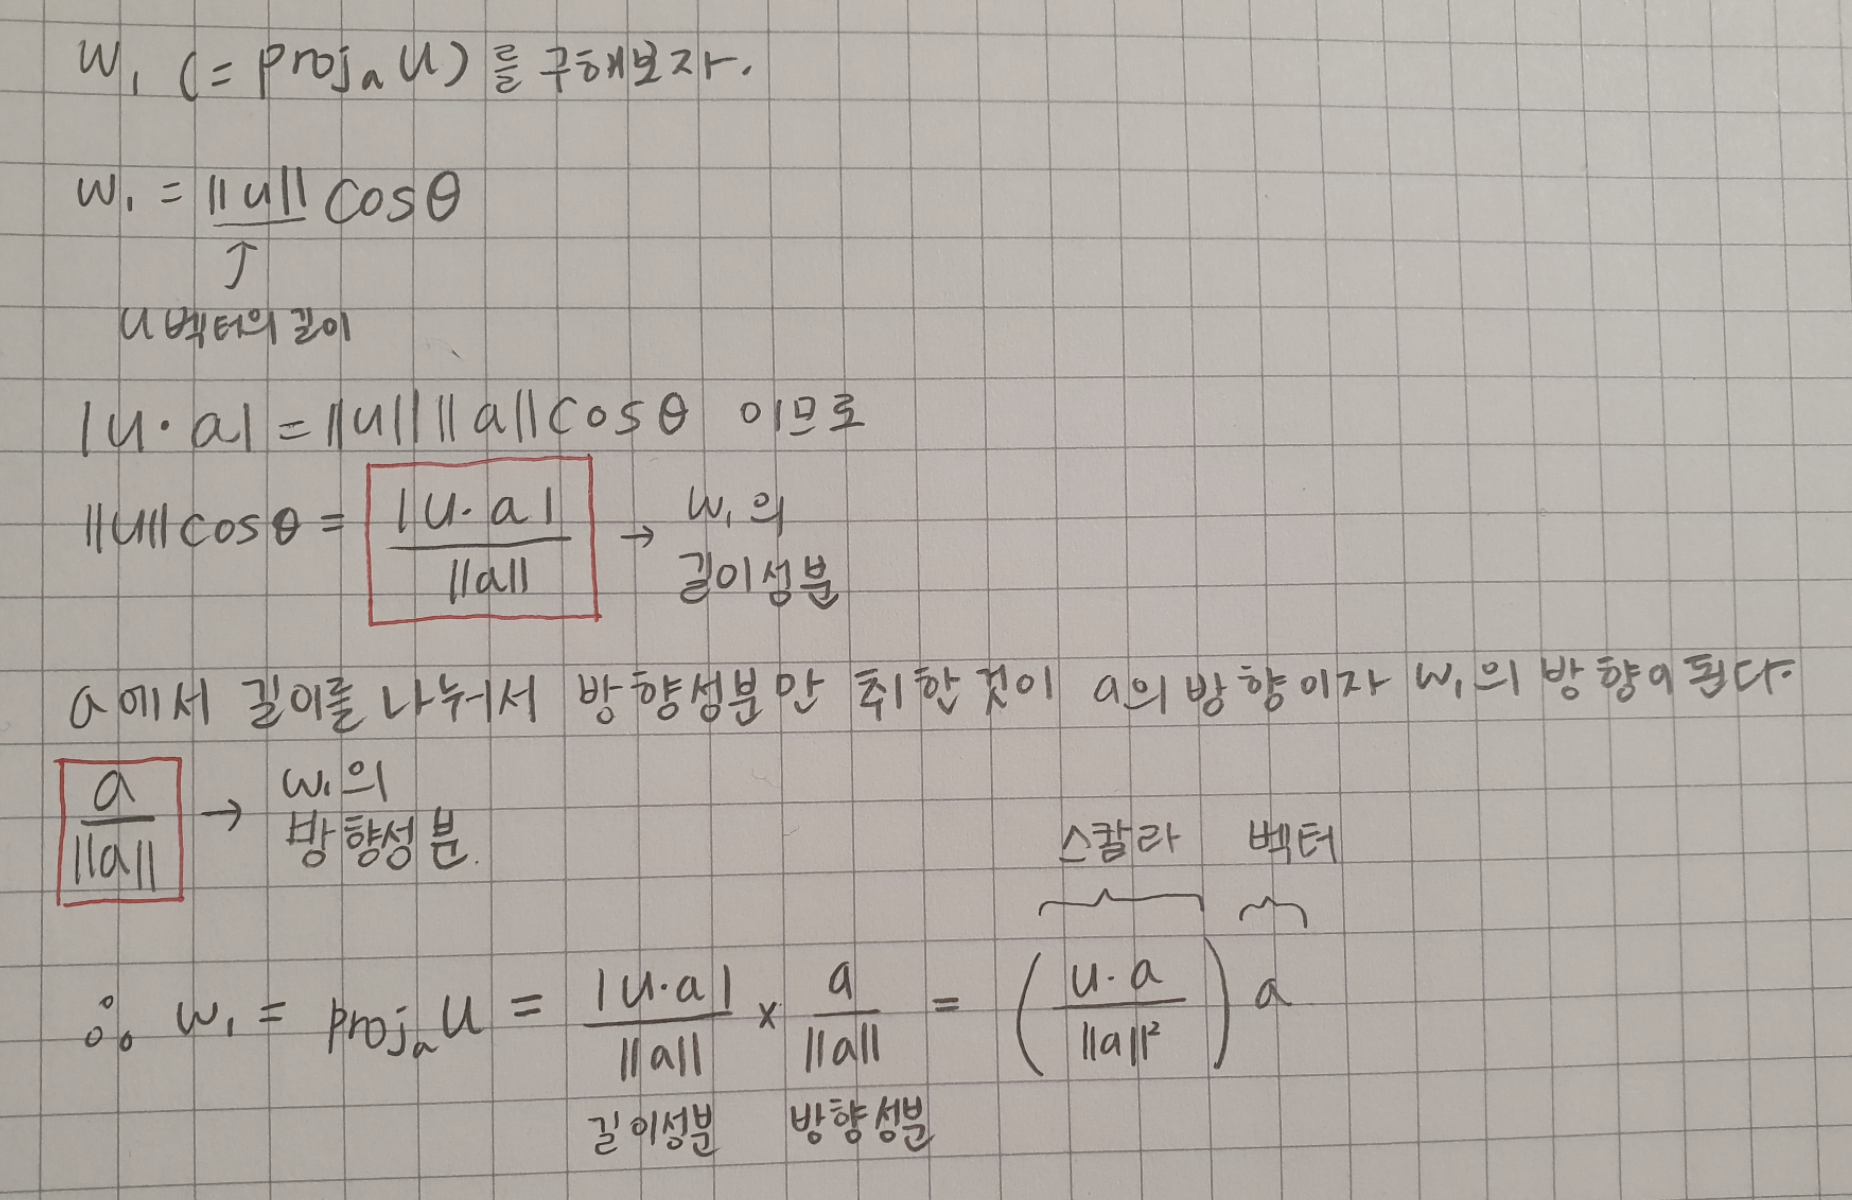 w₁ (= projₐ u) 를 구해보자.
w₁ = ||u|| cosθ
↑
u 벡터의 길이
|u · a| = ||u|| ||a|| cosθ 이므로
||u|| cosθ = |u · a| / ||a|| → w₁의 길이성분
a에서 길이를 나눠서 방향성분만 취한것이 a의 방향이자 w₁의 방향이 된다.
a / ||a|| → w₁의 방향성분.
스칼라 벡터
∴ w₁ = projₐ u = |u · a| / ||a|| × a / ||a|| = ( u · a / ||a||² ) a
길이성분 방향성분